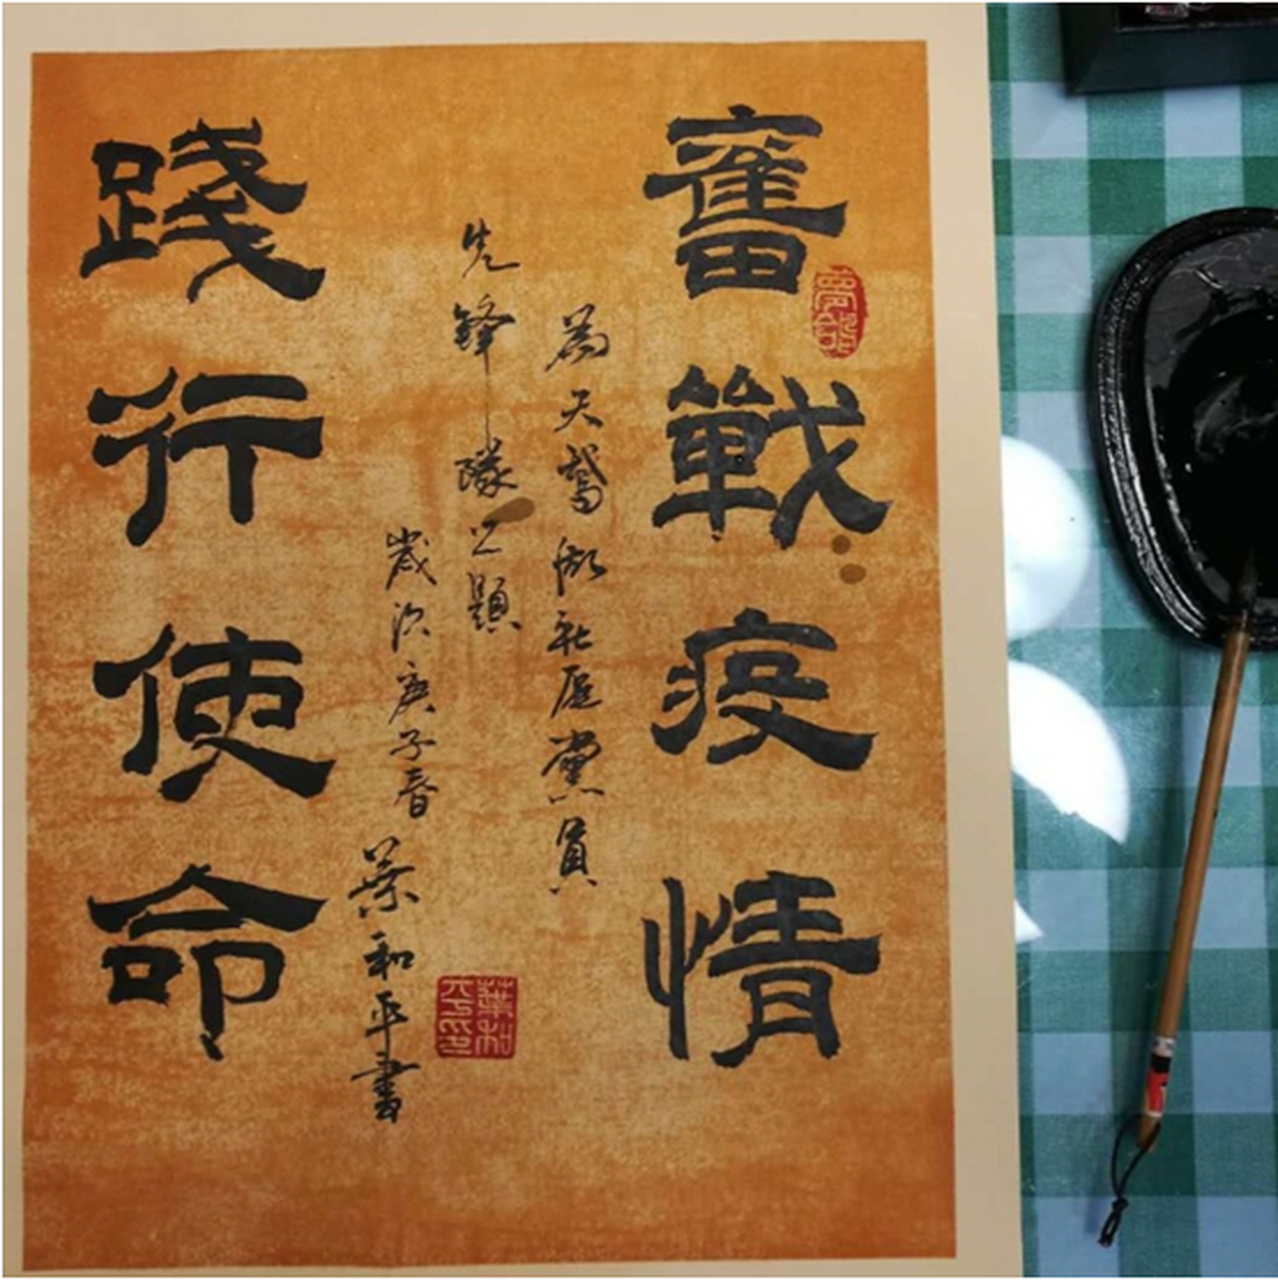 奮戰疫情
為天鵝湖社區黨員
先鋒隊之題
歲次庚子春 葉和平書
葉和平印
踐行使命